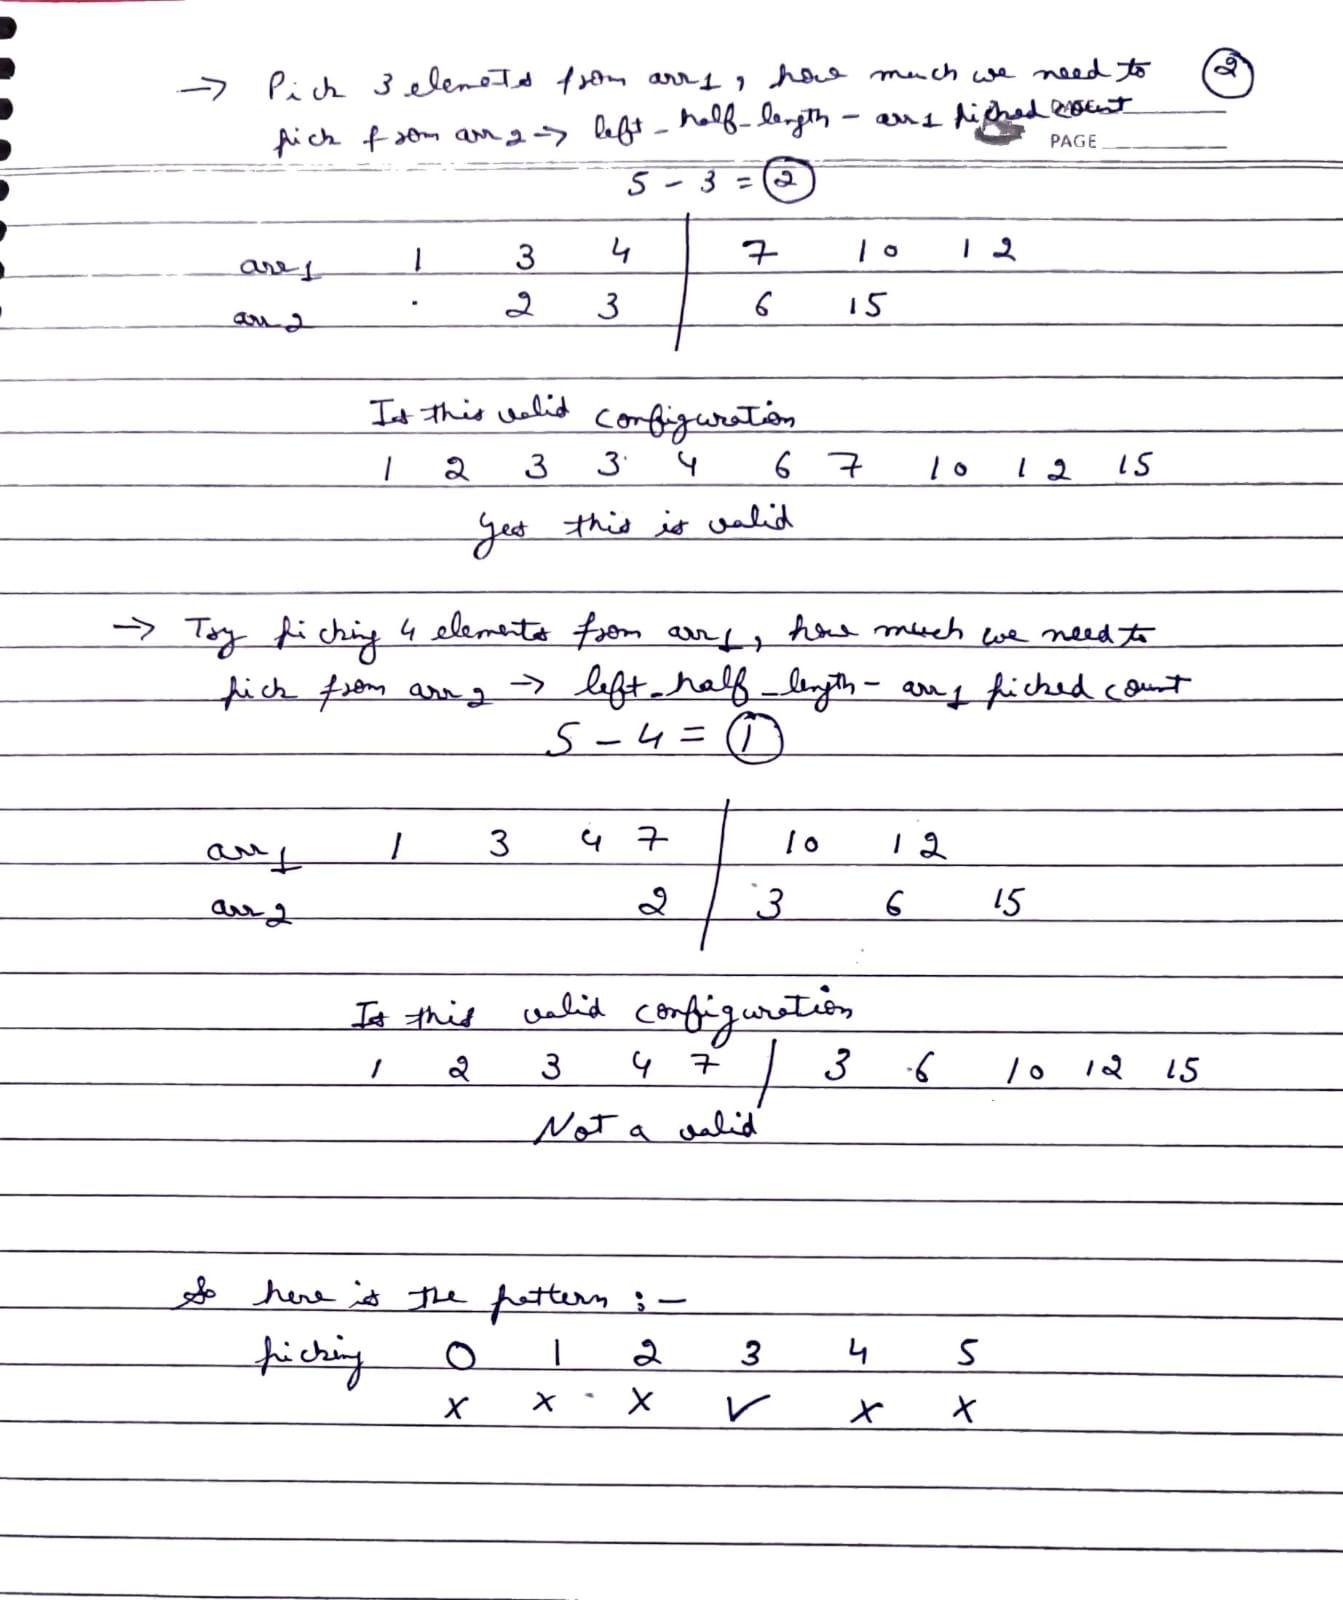 → Pick 3 elements from arr1, how much we need to
②
pick from arr2 → left_half_length - arr1 picked count
PAGE
5 - 3 = ②
arr1 1 3 4 | 7 10 12
arr2 2 3 | 6 15
Is this valid configuration
1 2 3 3 4 6 7 10 12 15
Yes this is valid
→ Try picking 4 elements from arr1, how much we need to
pick from arr2 → left_half_length - arr1 picked count
5 - 4 = ①
arr1 1 3 4 7 | 10 12
arr2 2 | 3 6 15
Is this valid configuration
1 2 3 4 7 | 3 6 10 12 15
Not a valid
So here is the pattern :-
picking 0 1 2 3 4 5
x x x ✓ x x